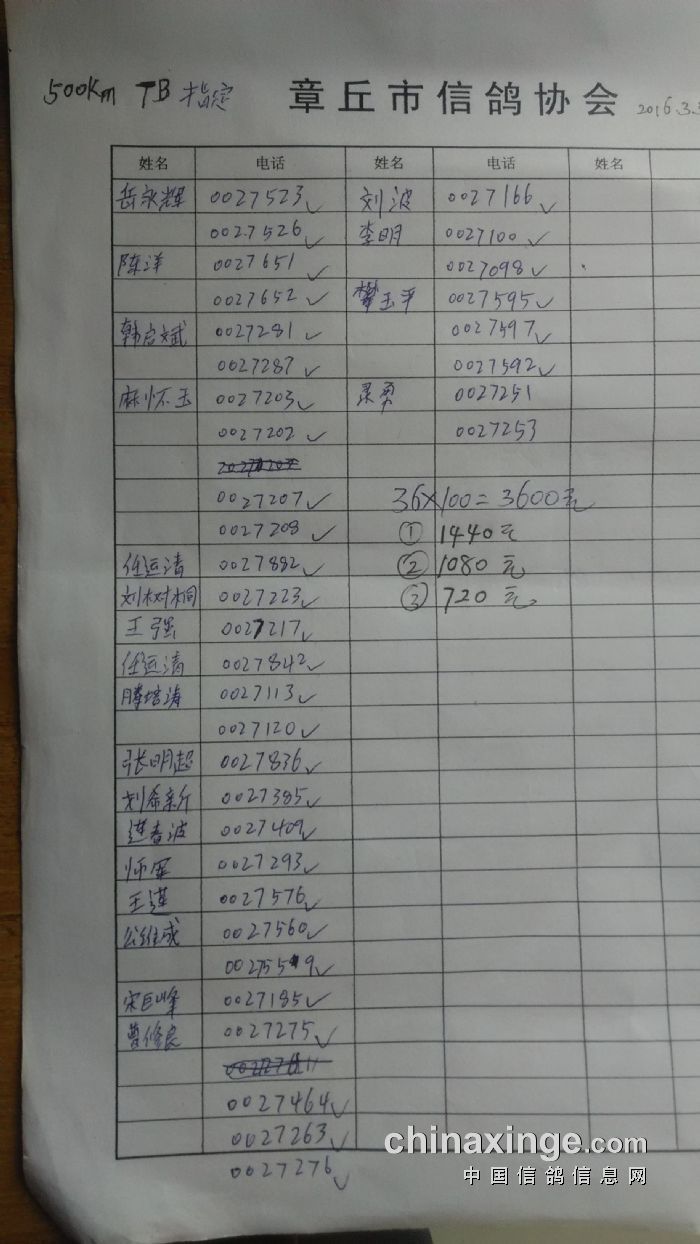 500Km TB 指定 章丘市信鸽协会 2016.3.3
姓名 电话 姓名 电话 姓名
岳永辉 0027523✓ 刘波 0027166✓
0027526✓ 李明 0027100✓
陈洋 0027651✓ 0027098✓
0027652✓ 攀玉平 0027595✓
韩启斌 0027281✓ 0027597✓
0027287✓ 0027592✓
麻怀玉 0027203✓ 0027251
0027202✓ 0027253
0027207✓ 36×100=3600元
0027208✓ ① 1440元
任运清 0027882✓ ② 1080元
刘树桐 0027223✓ ③ 720元
王强 0027217✓
任运清 0027842✓
滕培涛 0027113✓
0027120✓
张明超 0027836✓
刘希新 0027385✓
逯春波 0027409✓
师军 0027293✓
王逵 0027576✓
公维成 0027560✓
0027559✓
宋巨峰 0027185✓
曹修良 0027275✓
0027464✓
0027263✓
0027276✓
chinaxinge.com
中国信鸽信息网